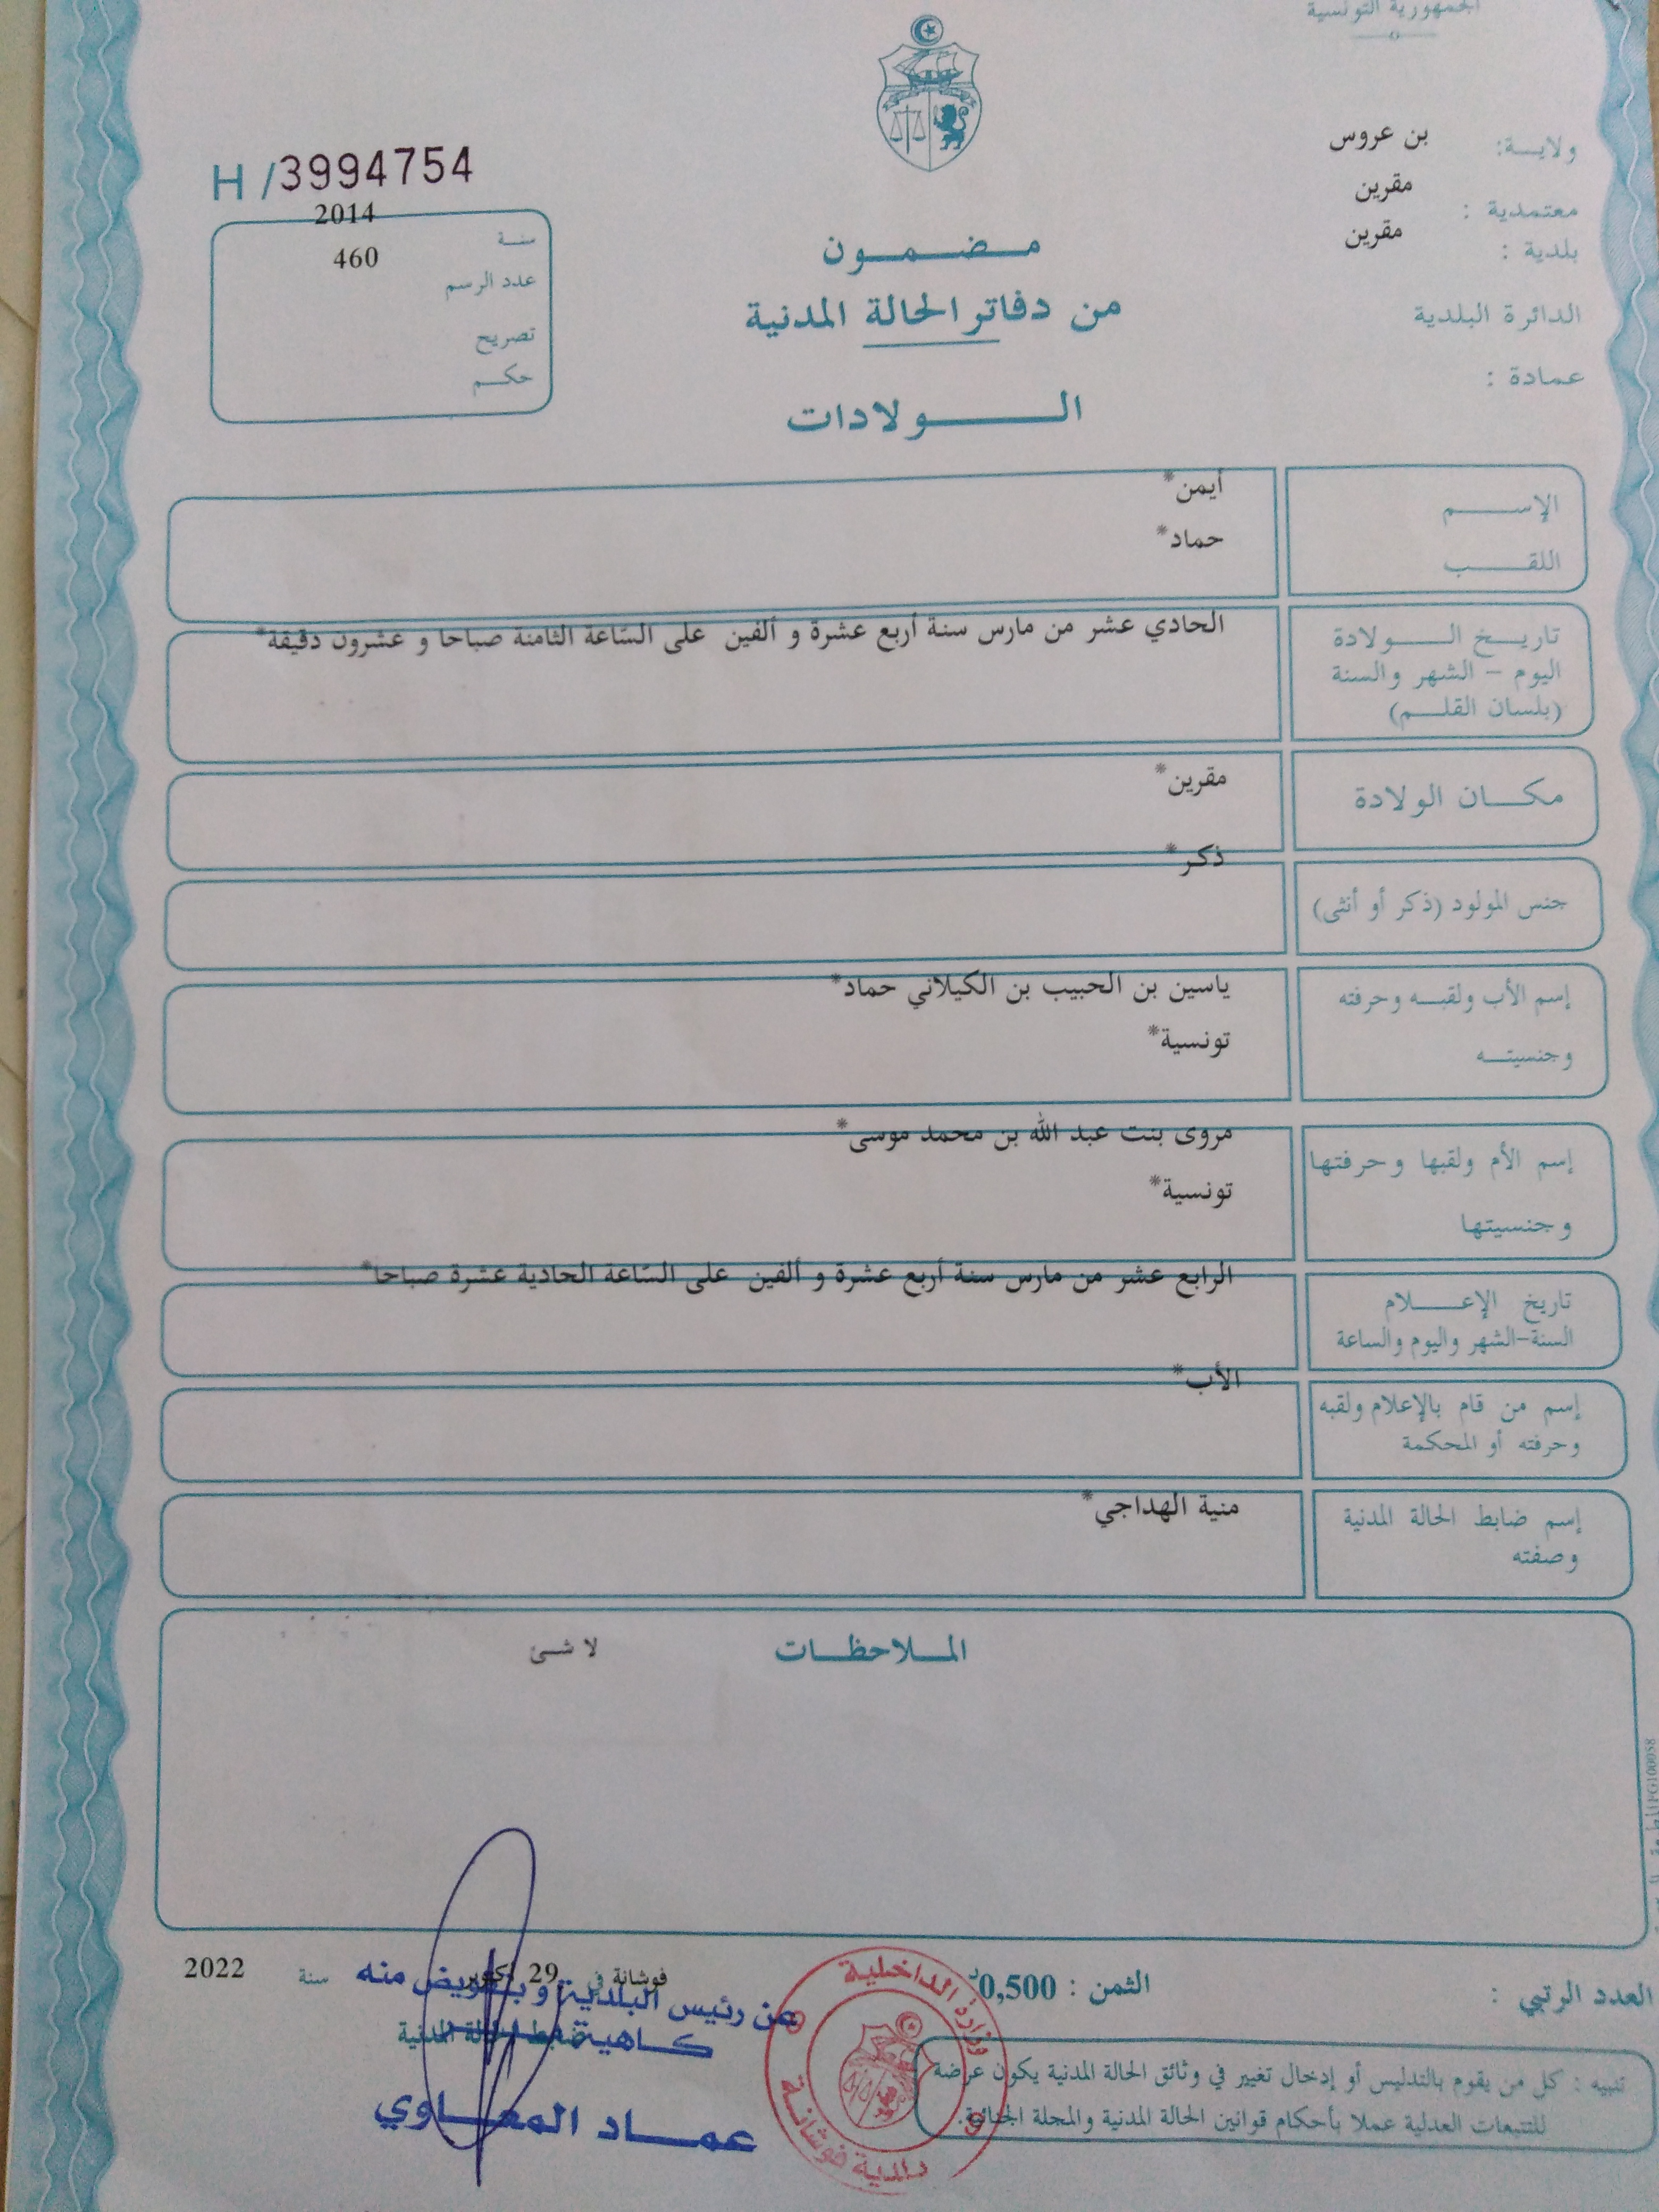 الجمهورية التونسية
ولايـــة: بن عروس
معتمدية : مقرين
بلدية : مقرين
الدائرة البلدية
عمادة :
مـضـمـون
من دفاتر الحالة المدنية
الـولادات
H /3994754
سنة 2014
عدد الرسم 460
تصريح
حكم
الإسم أيمن*
اللقب حماد*
تاريخ الولادة
اليوم - الشهر والسنة
(بلسان القلم)
الحادي عشر من مارس سنة أربع عشرة و ألفين على الساعة الثامنة صباحا و عشرون دقيقة*
مكان الولادة مقرين*
جنس المولود (ذكر أو أنثى) ذكر*
إسم الأب ولقبه وحرفته ياسين بن الحبيب بن الكيلاني حماد*
وجنسيته تونسية*
إسم الأم ولقبها وحرفتها مروى بنت عبد الله بن محمد موسى*
وجنسيتها تونسية*
تاريخ الإعلام
السنة-الشهر واليوم والساعة
الرابع عشر من مارس سنة أربع عشرة و ألفين على الساعة الحادية عشرة صباحا*
إسم من قام بالإعلام ولقبه
وحرفته أو المحكمة
الأب*
إسم ضابط الحالة المدنية
وصفته
منية الهداجي*
الملاحظات
لا شئ
العدد الرتبي :
الثمن : 0,500د
فوشانة في 29 أكتوبر سنة 2022
ضابط الحالة المدنية
عن رئيس البلدية وبتفويض منه
كاهية
عماد المعاوي
وزارة الداخلية
بلدية فوشانة
تنبيه : كل من يقوم بالتدليس أو إدخال تغيير في وثائق الحالة المدنية يكون عرضة
للتتبعات العدلية عملا بأحكام قوانين الحالة المدنية والمجلة الجنائية.